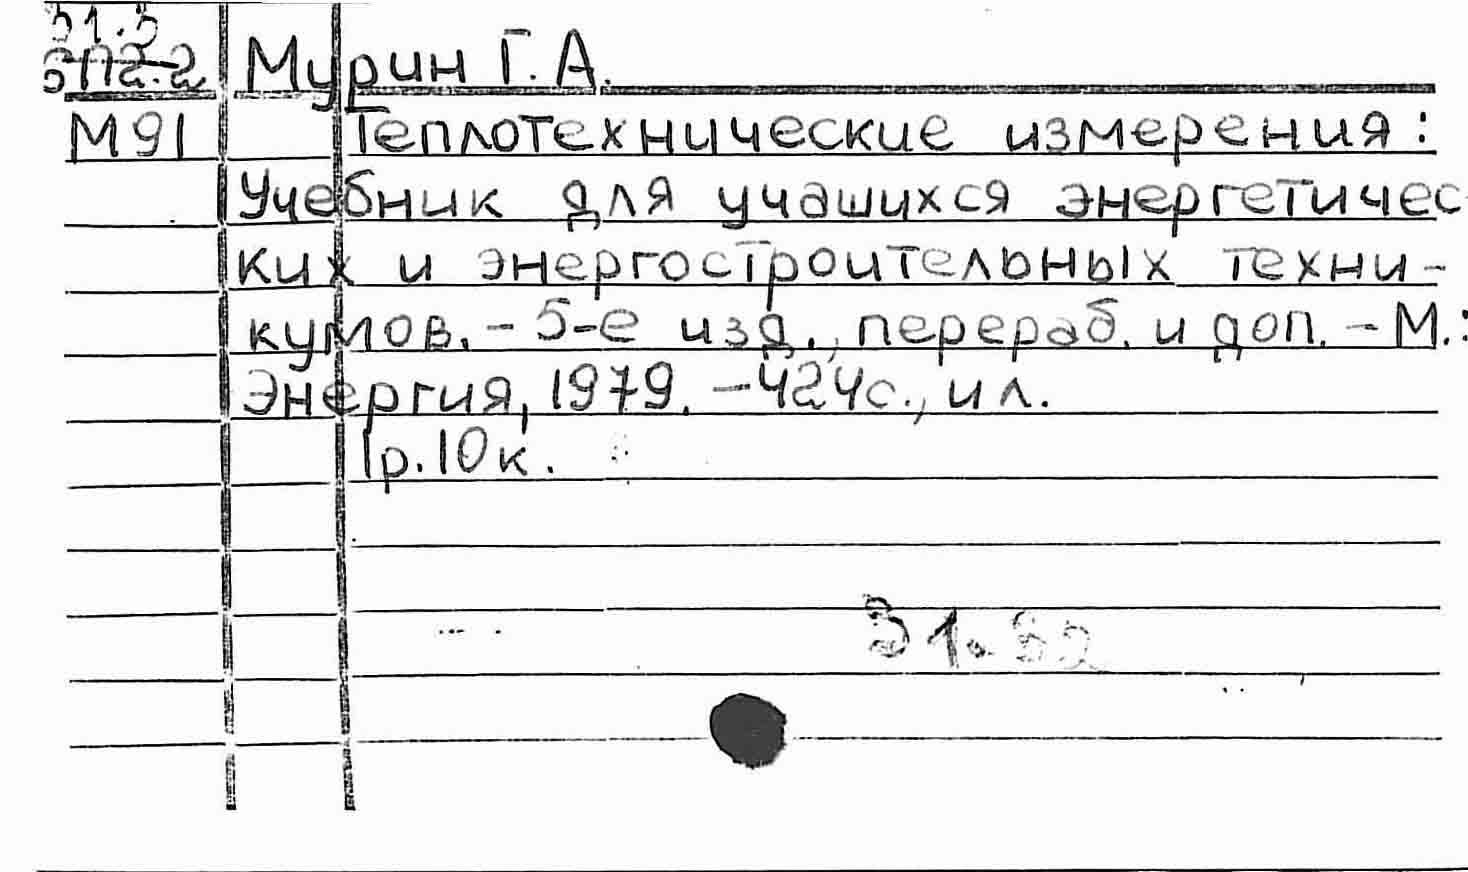 31.3
6П2.2 Мурин Г. А.
М91 Теплотехнические измерения:
Учебник для учашихся энергетичес-
ких и энергостроительных техни-
кумов. - 5-е изд., перераб. и доп. - М.:
Энергия, 1979. - 424с., ил.
1р.10к.
31.32